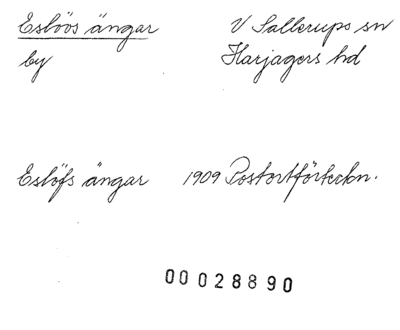 Eslöös ängar V Sallerups sn
by Harjagers hd
Eslöfs ängar 1909 Postortförteckn.
00028890